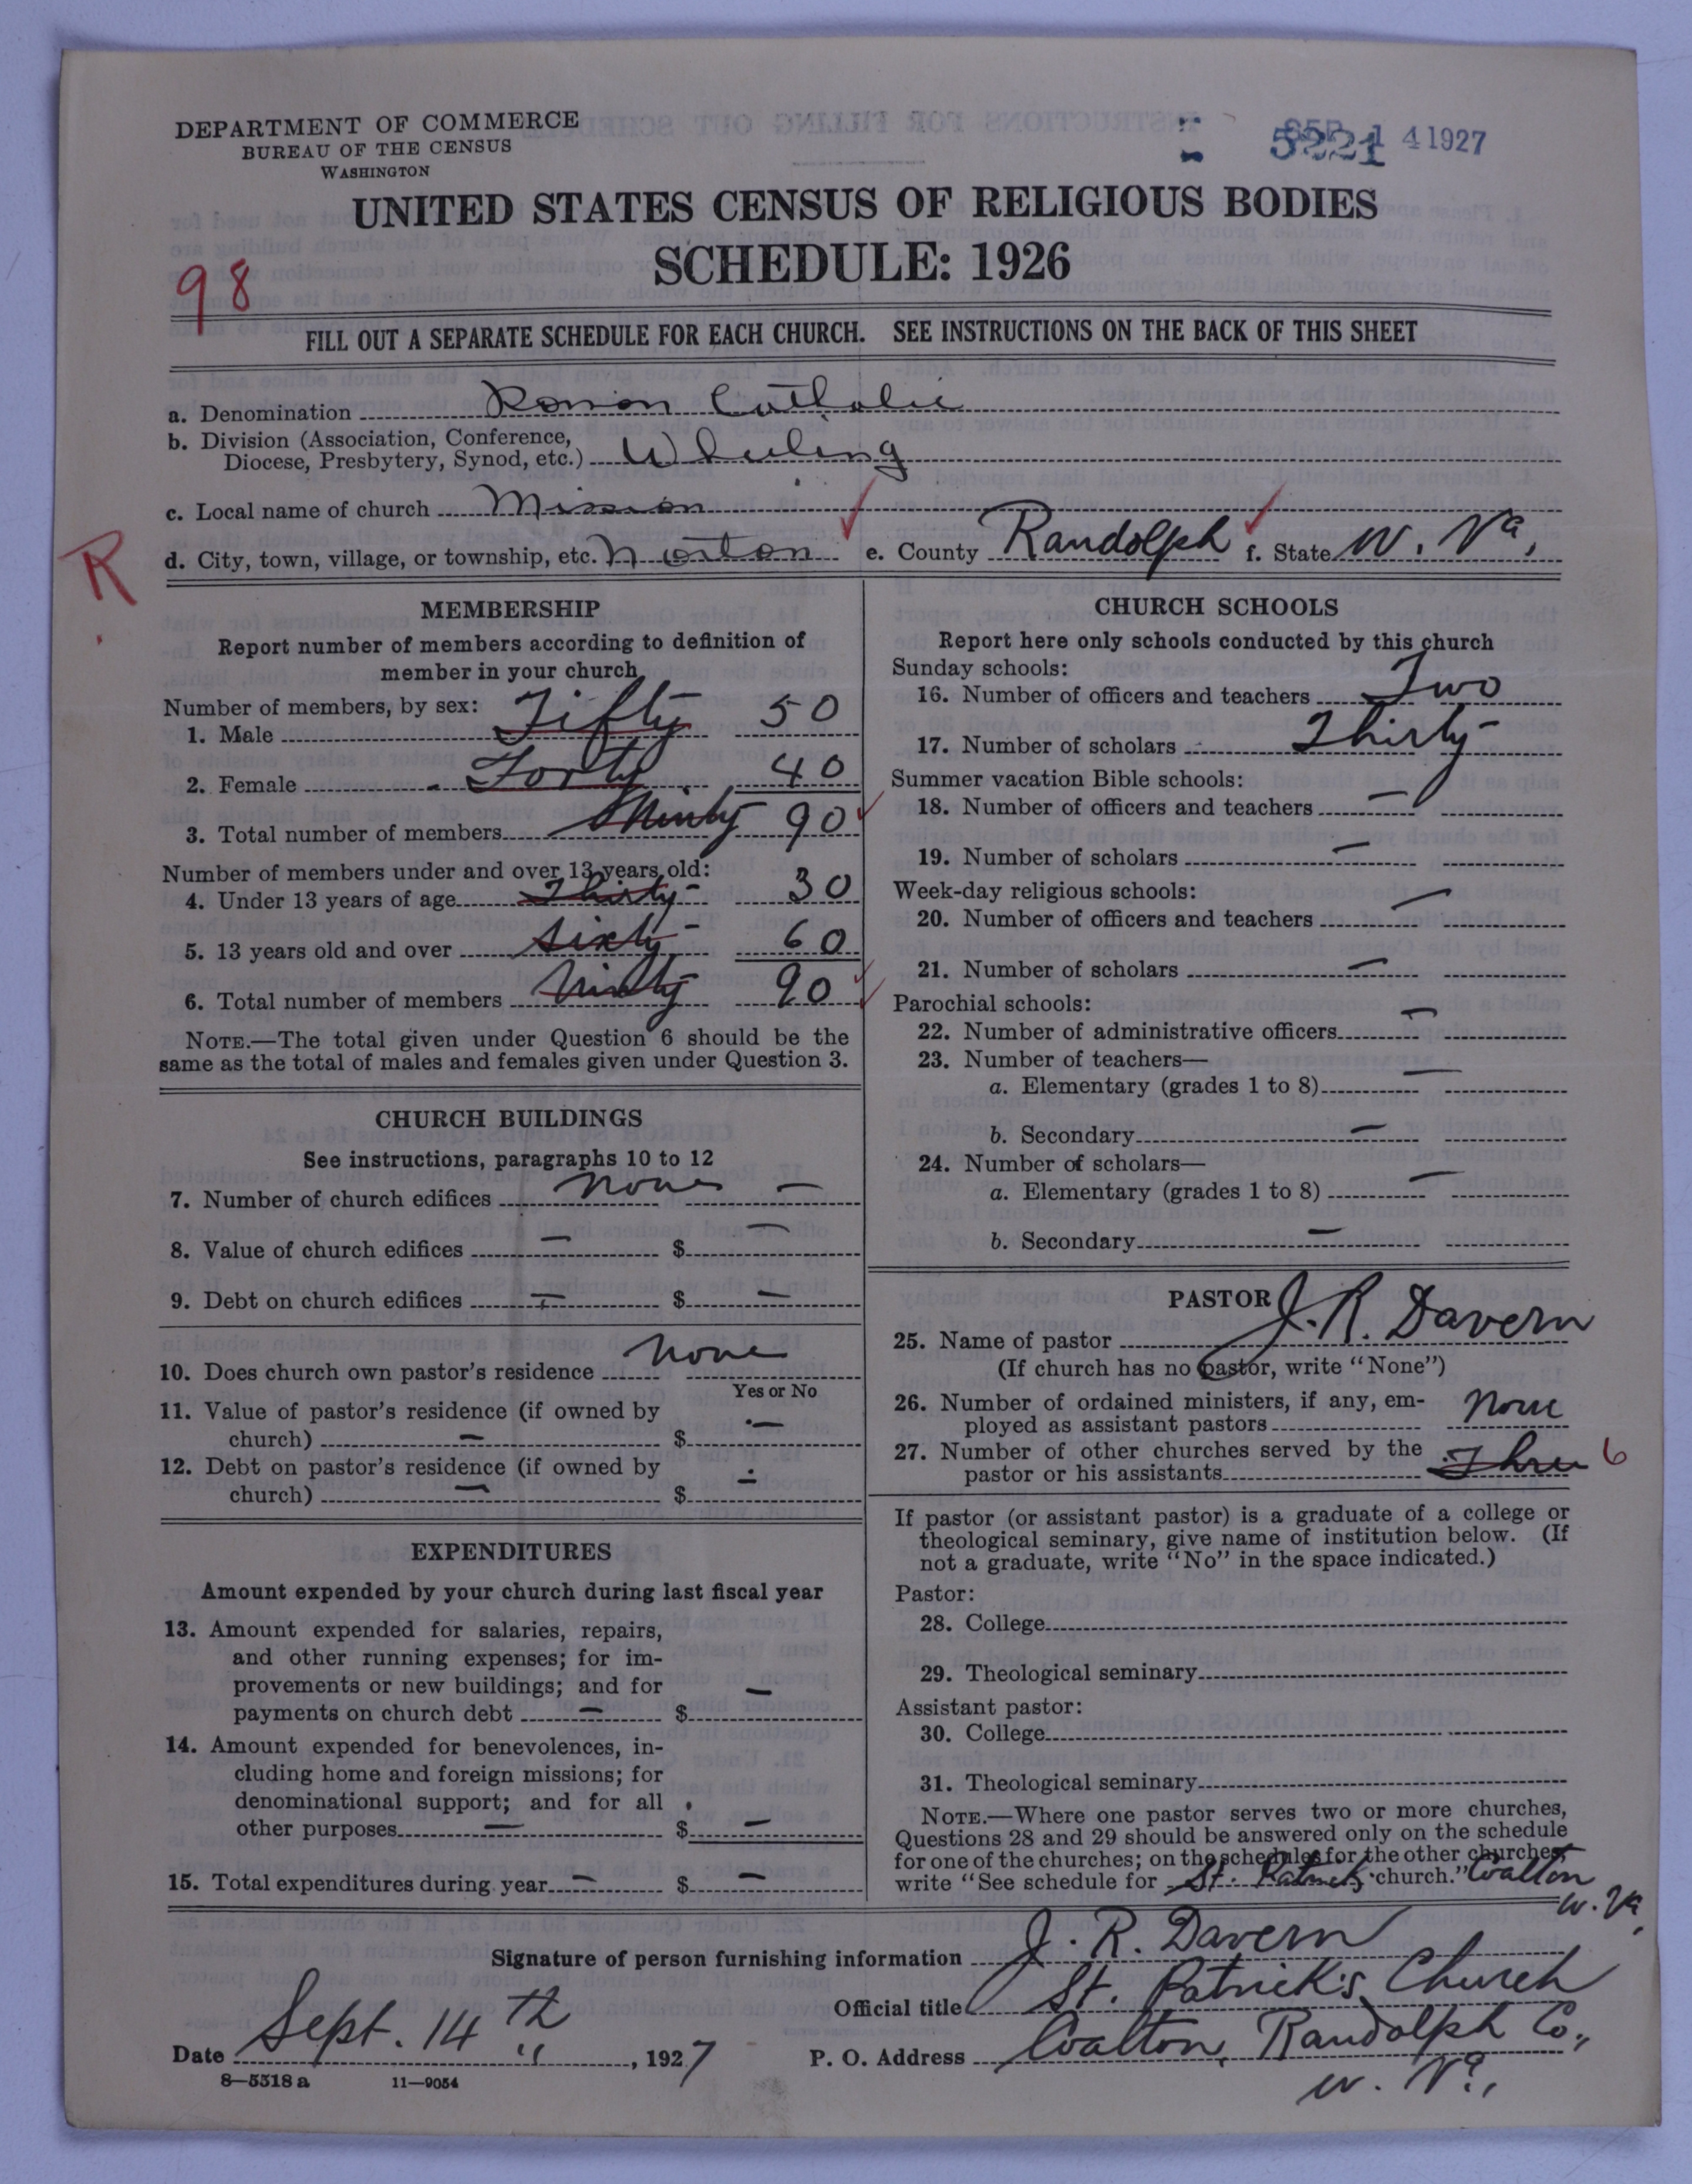 DEPARTMENT OF COMMERCE
BUREAU OF THE CENSUS
WASHINGTON
5221
SEP 14 1927
UNITED STATES CENSUS OF RELIGIOUS BODIES
SCHEDULE: 1926
98
FILL OUT A SEPARATE SCHEDULE FOR EACH CHURCH. SEE INSTRUCTIONS ON THE BACK OF THIS SHEET
a. Denomination Roman Catholic
b. Division (Association, Conference,
Diocese, Presbytery, Synod, etc.) Wheeling
c. Local name of church Mission
R
d. City, town, village, or township, etc. Norton e. County Randolph f. State W. Va.
MEMBERSHIP
Report number of members according to definition of
member in your church
Number of members, by sex:
1. Male Fifty 50
2. Female Forty 40
3. Total number of members Ninty 90
Number of members under and over 13 years old:
4. Under 13 years of age Thirty 30
5. 13 years old and over Sixty 60
6. Total number of members Ninty 90
NOTE.—The total given under Question 6 should be the
same as the total of males and females given under Question 3.
CHURCH BUILDINGS
See instructions, paragraphs 10 to 12
7. Number of church edifices None —
8. Value of church edifices — $ —
9. Debt on church edifices — $ —
10. Does church own pastor's residence None
Yes or No
11. Value of pastor's residence (if owned by
church) — $ —
12. Debt on pastor's residence (if owned by
church) — $ —
EXPENDITURES
Amount expended by your church during last fiscal year
13. Amount expended for salaries, repairs,
and other running expenses; for im-
provements or new buildings; and for
payments on church debt — $ —
14. Amount expended for benevolences, in-
cluding home and foreign missions; for
denominational support; and for all
other purposes — $ —
15. Total expenditures during year — $ —
CHURCH SCHOOLS
Report here only schools conducted by this church
Sunday schools:
16. Number of officers and teachers Two
17. Number of scholars Thirty
Summer vacation Bible schools:
18. Number of officers and teachers —
19. Number of scholars —
Week-day religious schools:
20. Number of officers and teachers —
21. Number of scholars —
Parochial schools:
22. Number of administrative officers —
23. Number of teachers—
a. Elementary (grades 1 to 8) —
b. Secondary —
24. Number of scholars—
a. Elementary (grades 1 to 8) —
b. Secondary —
PASTOR
25. Name of pastor J. R. Davern
(If church has no pastor, write "None")
26. Number of ordained ministers, if any, em-
ployed as assistant pastors None
27. Number of other churches served by the
pastor or his assistants Three 6
If pastor (or assistant pastor) is a graduate of a college or
theological seminary, give name of institution below. (If
not a graduate, write "No" in the space indicated.)
Pastor:
28. College
29. Theological seminary
Assistant pastor:
30. College
31. Theological seminary
NOTE.—Where one pastor serves two or more churches,
Questions 28 and 29 should be answered only on the schedule
for one of the churches; on the schedules for the other churches,
write "See schedule for St. Patrick's church." Coalton
W. Va.
Signature of person furnishing information J. R. Davern
Official title St. Patrick's Church
Date Sept. 14th, 1927 P. O. Address Coalton, Randolph Co.,
W. Va.,
8—5518 a 11—9054